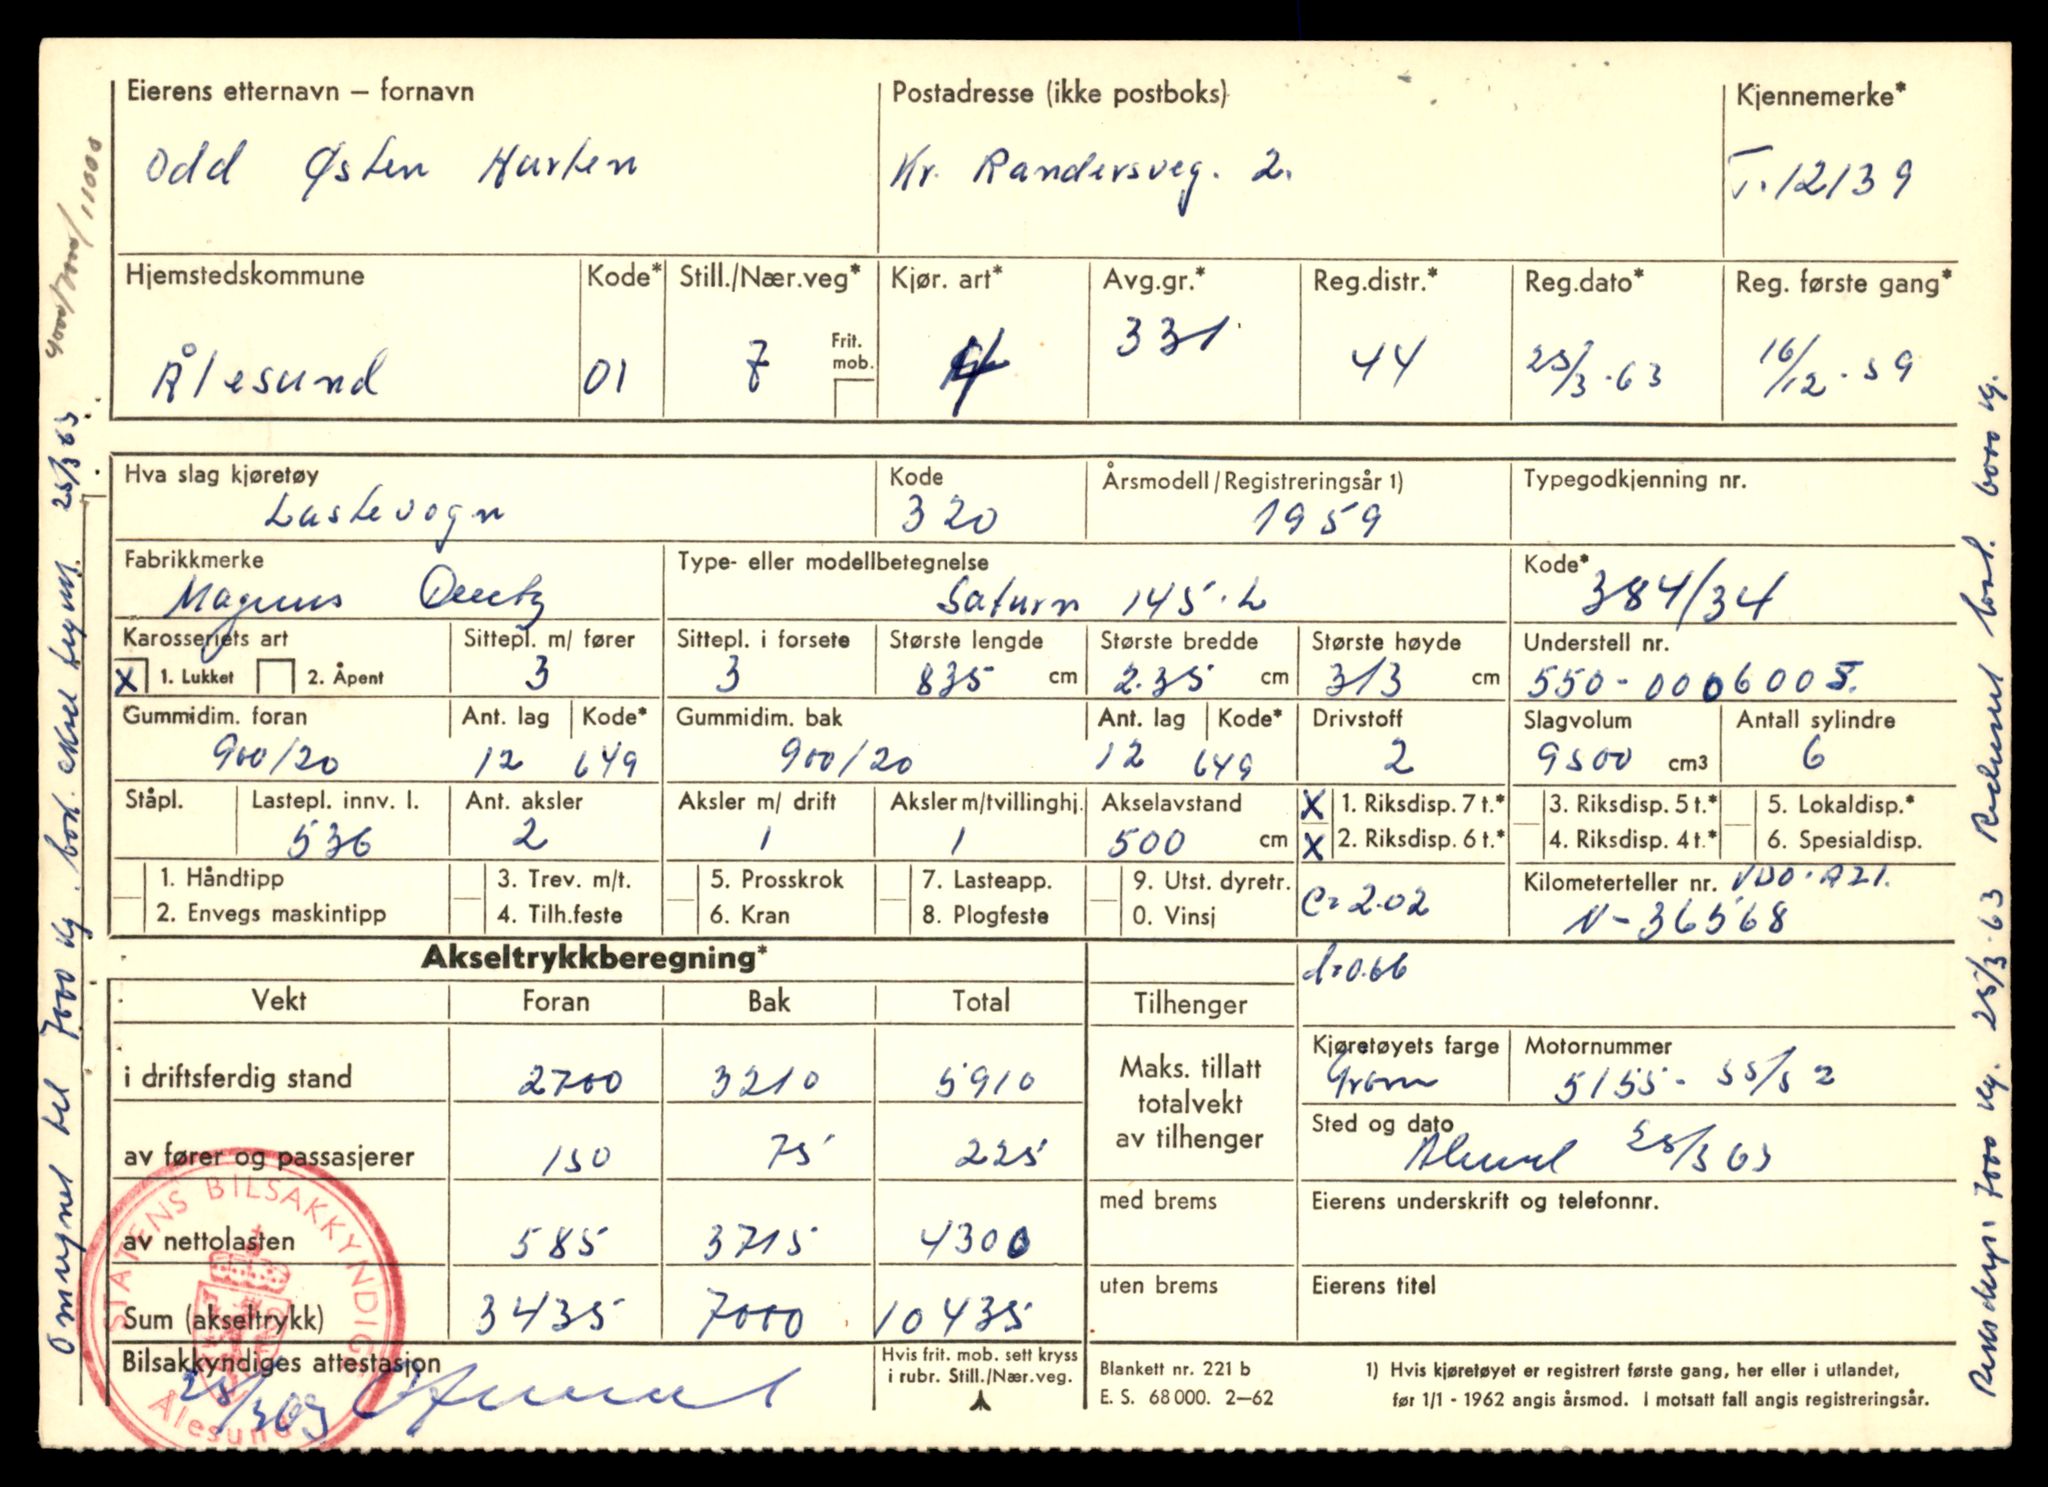 Eierens etternavn – fornavn
Odd Østen Hurlen
Postadresse (ikke postboks)
Kr. Randersveg. 2.
Kjennemerke*
T. 12139
Hjemstedskommune
Ålesund
Kode*
01
Still./Nær.veg*
7
Frit. mob.
Kjør. art*
Avg.gr.*
331
Reg.distr.*
44
Reg.dato*
25/3.63
Reg. første gang*
16/12.59
Hva slag kjøretøy
Lastevogn
Kode
320
Årsmodell/Registreringsår 1)
1959
Typegodkjenning nr.
Fabrikkmerke
Magirus Deutz
Type- eller modellbetegnelse
Saturn 145.L
Kode*
384/34
Karosseriets art
X 1. Lukket 2. Åpent
Sittepl. m/ fører
3
Sittepl. i forsete
3
Største lengde
835 cm
Største bredde
2.35 cm
Største høyde
313 cm
Understell nr.
550-0006005.
Gummidim. foran
900/20
Ant. lag
12
Kode*
649
Gummidim. bak
900/20
Ant. lag
12
Kode*
649
Drivstoff
2
Slagvolum
9500 cm3
Antall sylindre
6
Ståpl.
Lastepl. innv. l.
536
Ant. aksler
2
Aksler m/ drift
1
Aksler m/tvillinghj.
1
Akselavstand
500 cm
X 1. Riksdisp. 7 t.*
X 2. Riksdisp. 6 t.*
3. Riksdisp. 5 t.*
4. Riksdisp. 4 t.*
5. Lokaldisp.*
6. Spesialdisp.
1. Håndtipp
2. Envegs maskintipp
3. Trev. m/t.
4. Tilh.feste
5. Prosskrok
6. Kran
7. Lasteapp.
8. Plogfeste
9. Utst. dyretr.
0. Vinsj
C=2.02
Kilometerteller nr. VDO-A21.
N-36568
Akseltrykkberegning*
d=0.66
Vekt Foran Bak Total
i driftsferdig stand 2700 3210 5910
av fører og passasjerer 150 75 225
av nettolasten 585 3715 4300
Sum (akseltrykk) 3435 7000 10435
Tilhenger
Maks. tillatt
totalvekt
av tilhenger
med brems
uten brems
Kjøretøyets farge
Grønn
Motornummer
5155-55/52
Sted og dato
Ålesund 25/3 63
Eierens underskrift og telefonnr.
Eierens titel
Bilsakkyndiges attestasjon
25/3 63
Hvis frit. mob. sett kryss
i rubr. Still./Nær.veg.
Blankett nr. 221 b
E. S. 68 000. 2–62
1) Hvis kjøretøyet er registrert første gang, her eller i utlandet,
før 1/1 - 1962 angis årsmod. I motsatt fall angis registreringsår.
STATENS BILSAKKYNDIGE
Ålesund
Omregnet til 7000 kg. bod. aksel trykk. 25/3 63.
4000/7000/11000
Riksdisp. 7000 kg. 25/3.63 6000 kg.